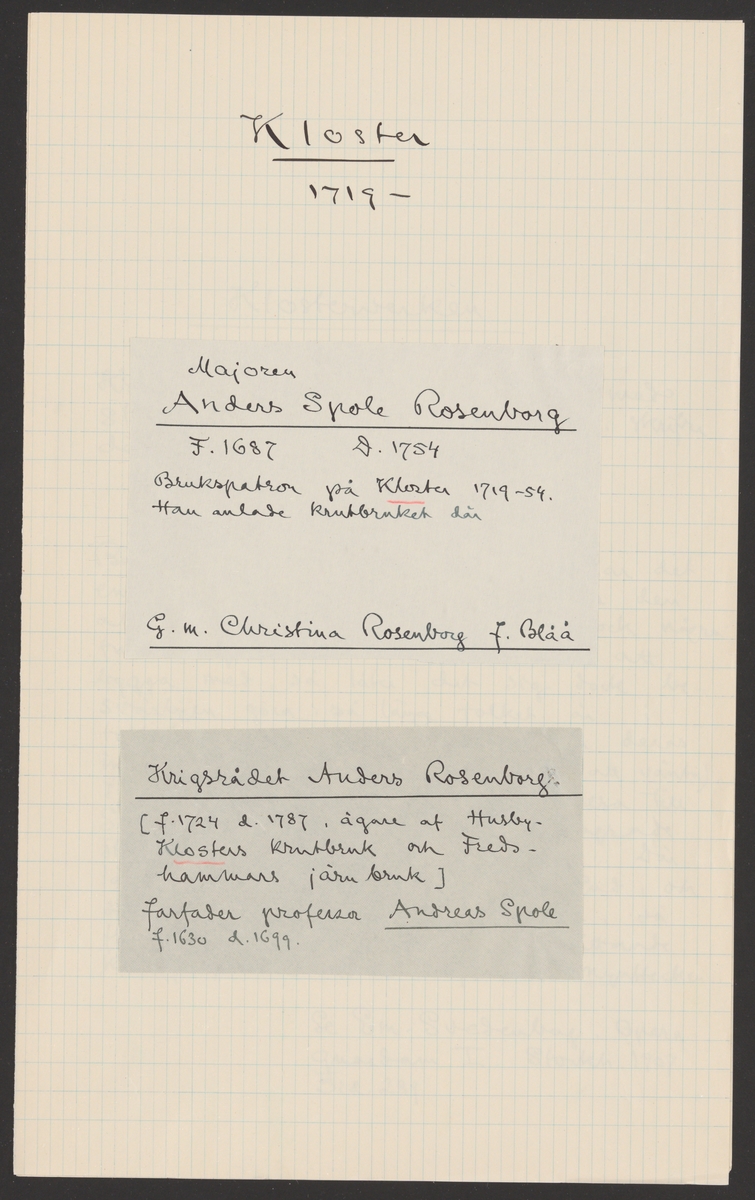 Kloster
1719 –
Majoren
Anders Spole Rosenborg
F. 1687 D. 1754
Brukspatron på Kloster 1719-54.
Han anlade krutbruket där
G. m. Christina Rosenborg f. Blåå
Krigsrådet Anders Rosenborg.
[f. 1724 d. 1787, ägare af Husby-
Klosters krutbruk och Freds-
hammars järnbruk]
farfader professor Andreas Spole
f. 1630 d. 1699.